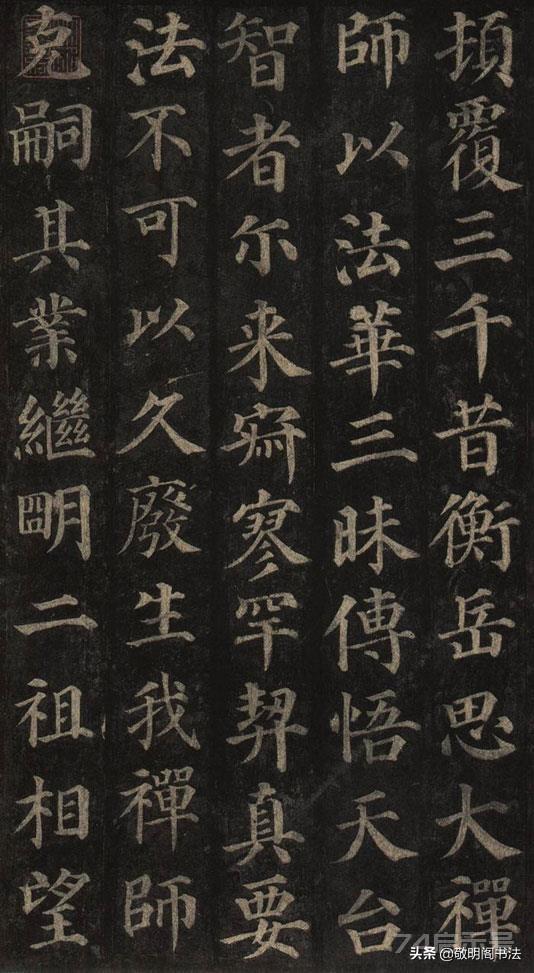 頂覆三千昔衡岳思大禪
師以法華三昧傳悟天台
智者尔来寂寥罕契真要
法不可以久廢生我禪師
克嗣其業繼明二祖相望
头条 @敬明阁书法